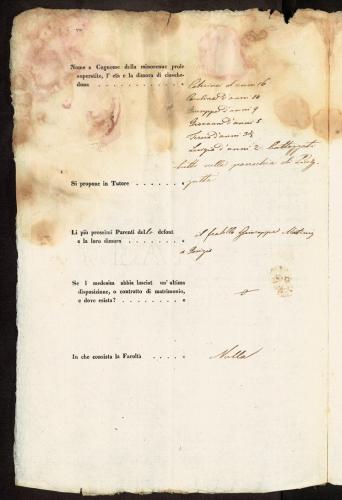 Nome e Cognome della minorenne prole
superstite, l' età e la dimora di ciasche-
duna
Caterina d'anni 16
d'anni 14
Giuseppe d'anni 9
Giovanni d'anni 5
Teresa d'anni 3½
Luigia d'anni 2
tutti nella parocchia di
Si propone in Tutore
Li più prossimi Parenti del defont
e la loro dimora
il fratello Giuseppe
a
Se l medesim abbia lasciat un' ultima
disposizione, o contratto di matrimonio,
e dove esista?
o
In che consista la Facoltà
Nulla